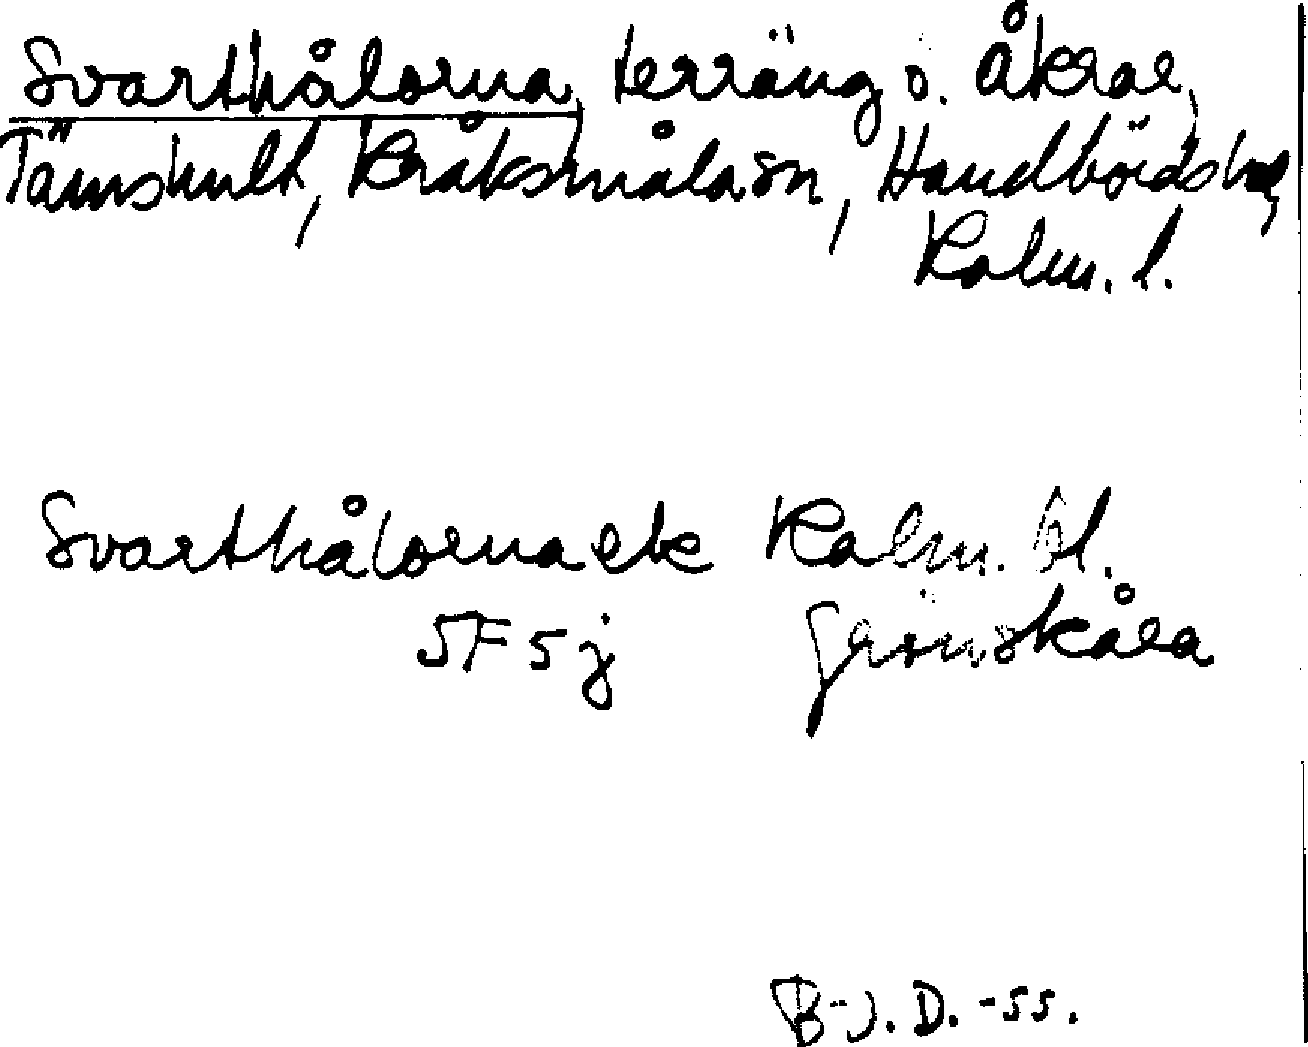 Svarthålorna, terräng o. åkrar,
Tämshult, Kråksmåla sn, Handbörds hd,
Kalm. l.
Svarthålorna ek Kalm. bl.
5F 5j Grönskåra
B-J. D. -55.